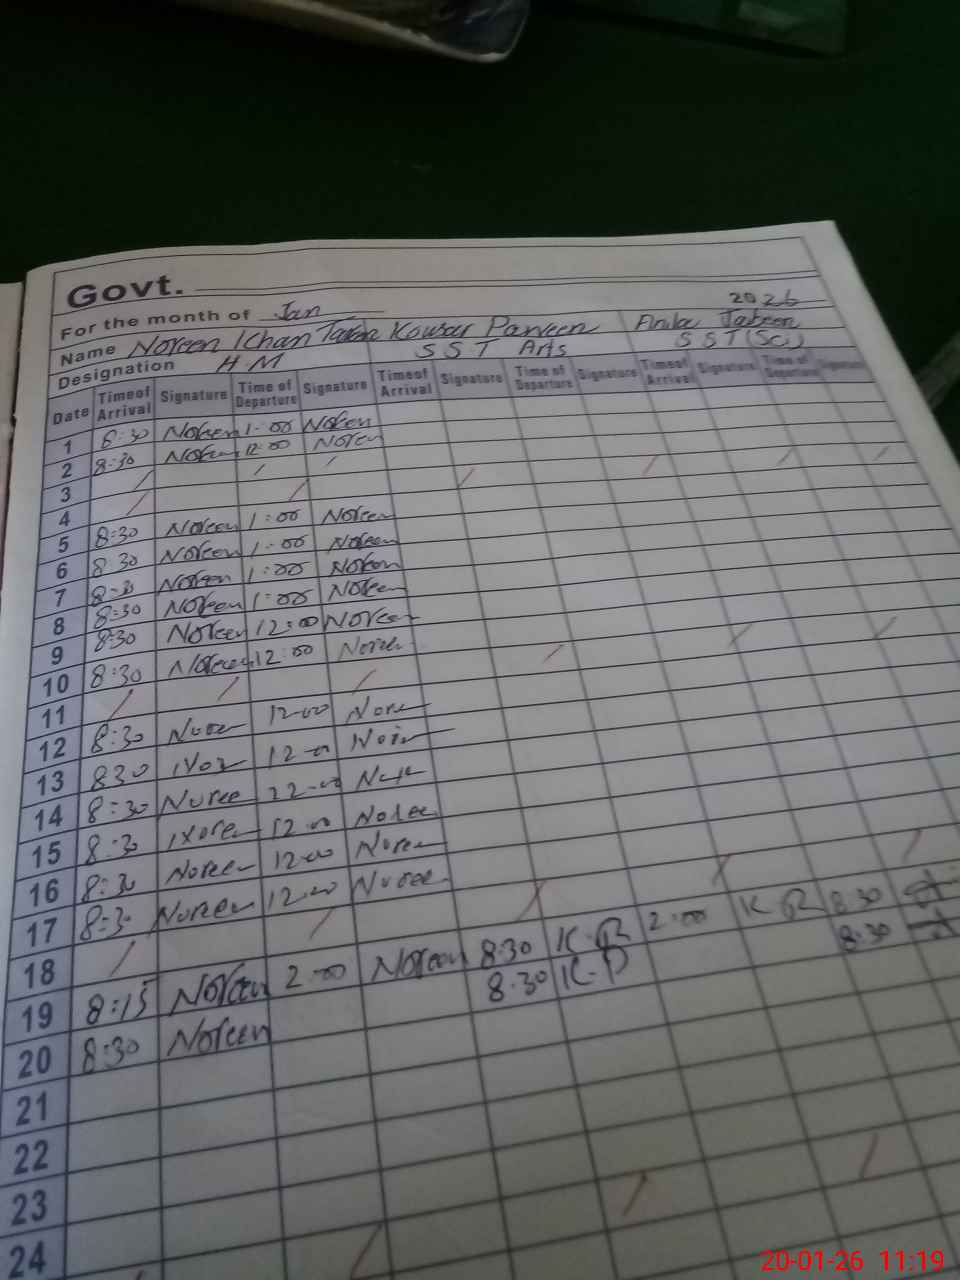 Govt.
For the month of Jan 2026
Name Noreen Khan Kousar Parveen Anila Jabeen
Designation H.M S S T Arts S S T (Sci)
Date Time of Arrival Signature Time of Departure Signature Time of Arrival Signature Time of Departure Signature Time of Arrival Signature Time of Departure Signature
1 8:30 Noreen 1:00 Noreen
2 8:30 Noreen 12:00 Noreen
3 / / /
4 / / / / / /
5 8:30 Noreen 1:00 Noreen
6 8:30 Noreen 1:00 Noreen
7 8:30 Noreen 1:00 Noreen
8 8:30 Noreen 1:00 Noreen
9 8:30 Noreen 12:00 Noreen
10 8:30 Noreen 12:00 Noreen
11 / / / / / /
12 8:30 Noree 12-00 Nore
13 830 12-00
14 8:30 Noree 12-00
15 8:30 Noree 12-00 Noree
16 8:30 Noreen 12-00 Noree
17 8:30 Noreen 12-00 Noree
18 / / / / /
19 8:15 Noreen 2:00 Noreen 8:30 K.P 2:00 K.P 8:30
20 8:30 Noreen 8:30 K.P 8:30
21
22
23
24
20-01-26 11:19